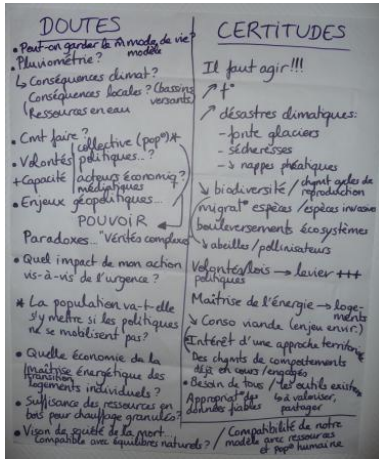 DOUTES
• Peut-on garder le m̂ mode de vie?
modèle
• Pluviométrie?
↳ Conséquences climat?
Conséquences locales? (bassins
versants)
(Ressources en eau
• Cmt faire?
collective (pop°)*
• Volontés politiques...?
+ Capacité acteurs économiq?
médiatiques
• Enjeux géopolitiques...
POUVOIR
Paradoxes... "Vérités complexes"
• Quel impact de mon action
vis-à-vis de l'urgence?
* La population va-t-elle
s'y mettre si les politiques
ne se mobilisent pas?
• Quelle économie de la
maîtrise énergétique des
transition
logements individuels?
• Suffisance des ressources en
bois pour chauffage granulés?
• Vison de société de la mort...
Compatible avec équilibres naturels?
CERTITUDES
Il faut agir!!!
↗ t°
↗ désastres climatiques:
- fonte glaciers
- sécheresses
- ↘ nappes phéatiques
↘ biodiversité / chgmt cycles de
reproduction
migrat° espèces / espèces invasives
bouleversements écosystèmes
↘ abeilles / pollinisateurs
Volontés/lois → levier +++
politiques
Maîtrise de l'énergie → loge-
ments
↘ Conso viande (enjeu envir.)
Intérêt d'une approche territoriale
Des chgmts de comportements
déjà en cours / engagés
• Besoin de tous / les outils existent
↳ à valoriser,
partager
Appropriat° des
données fiables
/ Compatibilité de notre
modèle avec ressources
et pop° humaine